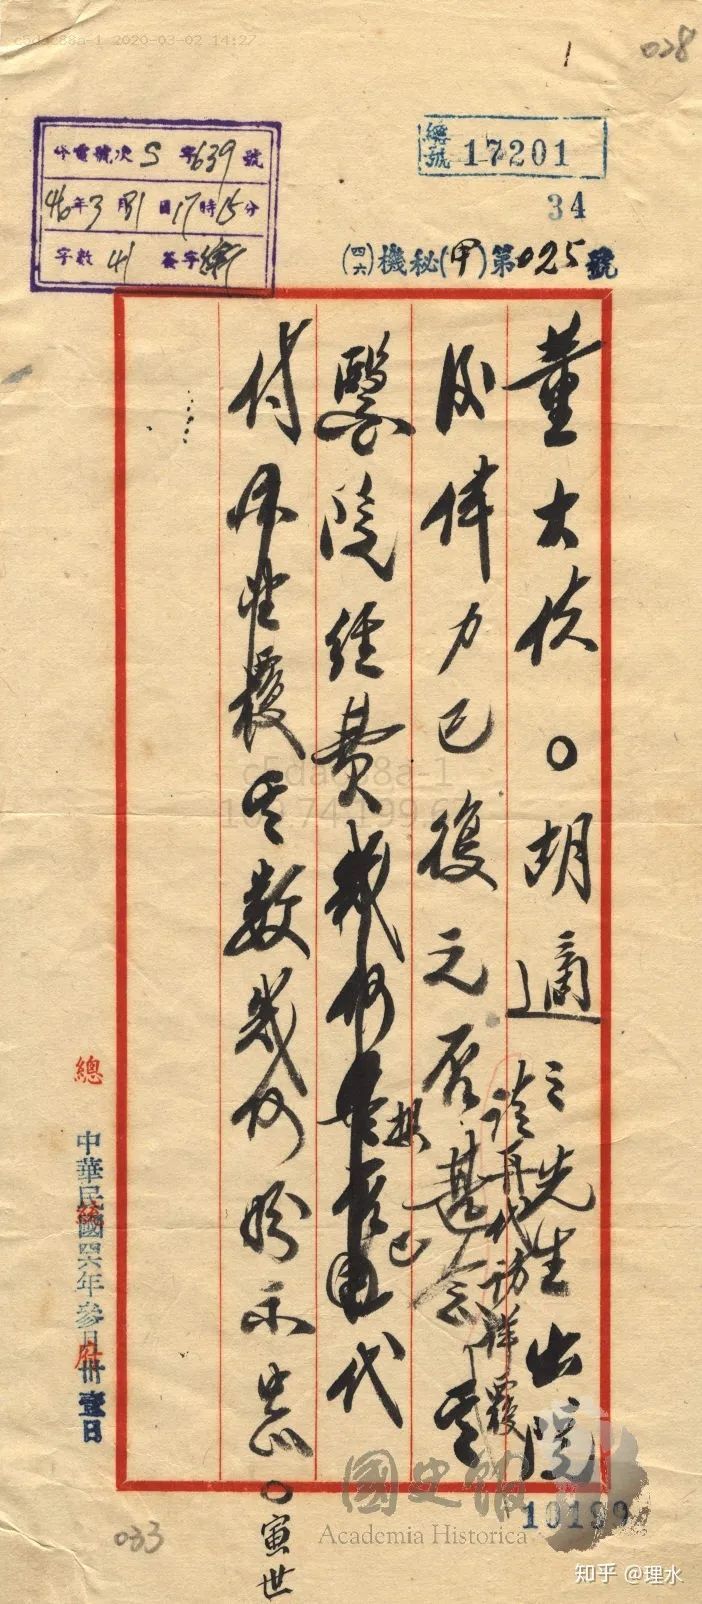 c5dac88a-1 2020-03-02 14:27
1
028
總號 17201
34
(四六)機秘(甲)第025號
來電號次 S 字639號
46年3月31日17時15分
字數 41 簽字
董大使○胡適之先生出院
後體力已復元否甚念其
請再代訪詳覆
醫院經費
擬已
代
付
望覆其數幾何盼示 中正○寅世
總統府
中華民國四六年參月卅壹日
c5dac88a-1
國史館
Academia Historica
10199
033
知乎 @理水